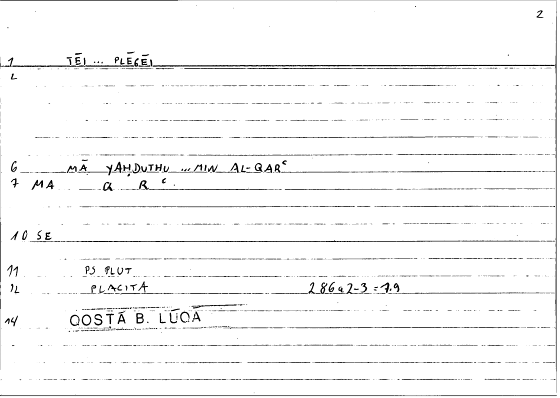 2
1 TĒI ... PLĒGĒI
2
6 MĀ YAḤDUTHU ... MIN AL-QARᶜ
7 MA Q R ᶜ
10 SE
11 PS PLUT
12 PLACITA 286a2-3 = 7.9
14 QOSṬĀ B. LŪQĀ